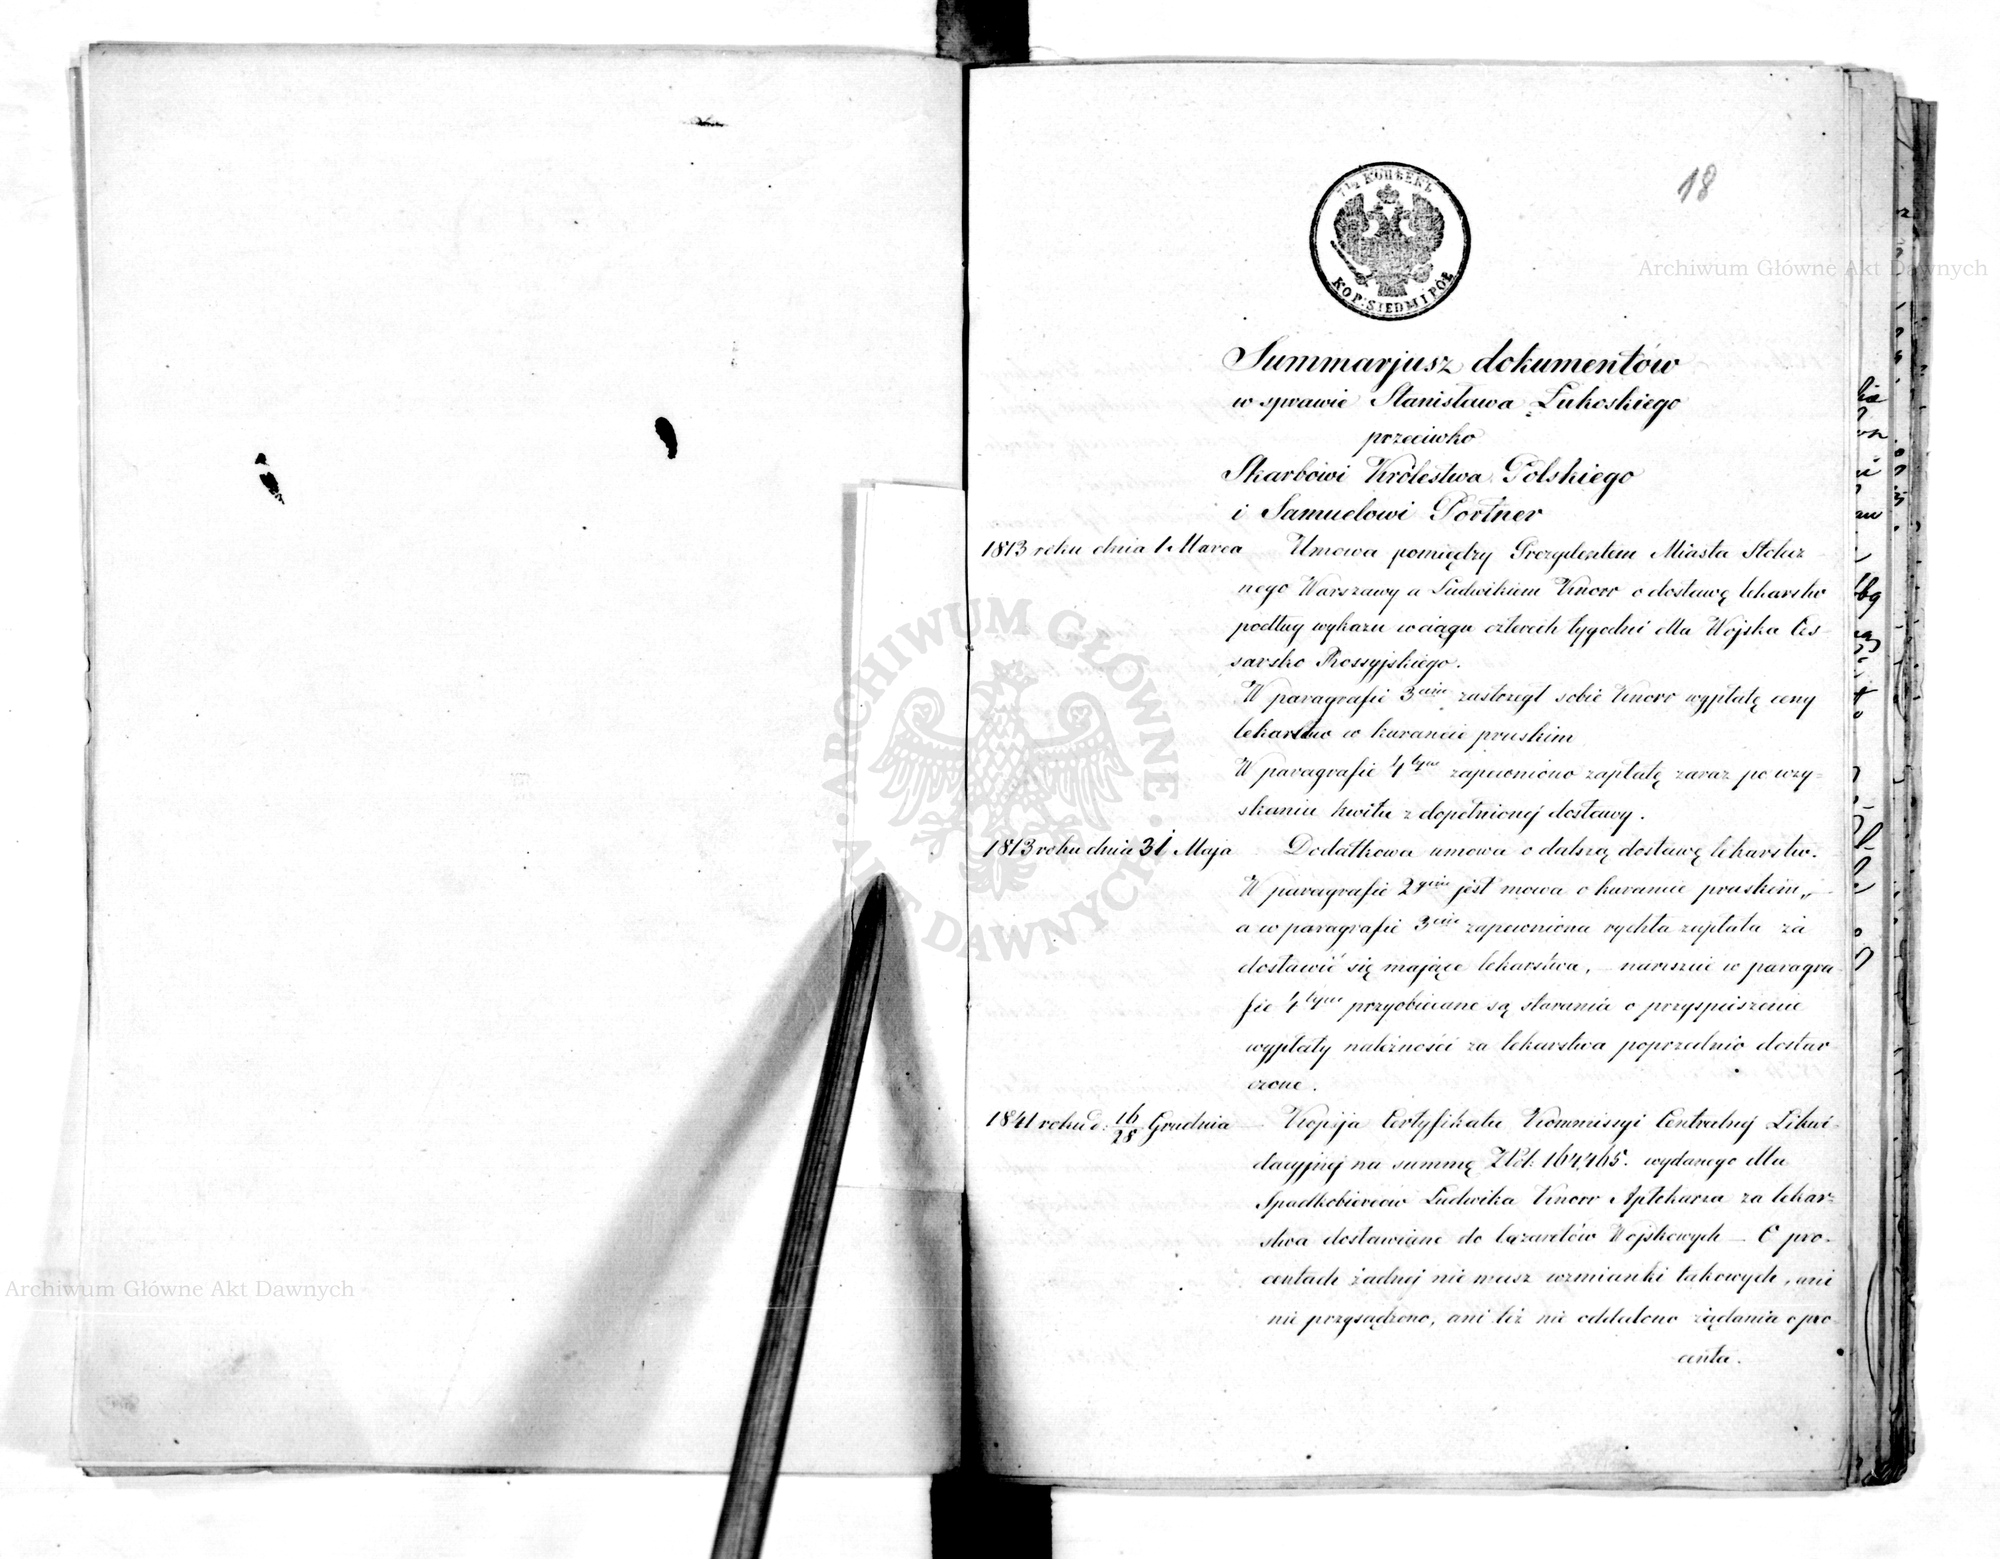 18
7½ КОПѢЕКЪ
KOP: SIEDM I PÓŁ
Summarjusz dokumentów
w sprawie Stanisława Łukoskiego
przeciwko
Skarbowi Królestwa Polskiego
i Samuelowi Portner
1813 roku dnia 1. Marca Umowa pomiędzy Prezydentem Miasta Stołecz
nego Warszawy a Ludwikiem Knorr o dostawę lekarstw
podług wykazu w ciągu czterech tygodni dla Wojska Ces-
sarsko Rossyjskiego.
W paragrafie 3cim zastrzegł sobie Knorr wypłatę ceny
lekarstw w kurancie pruskim
W paragrafie 4tym zapewniono zapłatę zaraz po uzy-
skaniu kwitu z dopełnionej dostawy.
1813 roku dnia 31 Maja Dodatkowa umowa o dalszą dostawę lekarstw.
W paragrafie 2gim jest mowa o kurancie pruskim,
a w paragrafie 3cim zapewniona rychła zapłata za
dostawić się mające lekarstwa, – nareszcie w paragra-
fie 4tym przyobiecane są starania o przyspieszenie
wypłaty należności za lekarstwa poprzednio dostar-
czone.
1841 roku d. 16/28 Grudnia Kopija Certyfikatu Kommissyi Centralnej Likwi-
dacyjnej na summę Złt: 164,465. wydanego dla
Spadkobierców Ludwika Knorr Aptekarza za lekar-
stwa dostawiane do lazaretów Wojskowych – O pro-
centach żadnej nie masz wzmianki takowych, ani
nie przysądzono, ani też nie oddalono żądania o pro-
centa.
ARCHIWUM GŁÓWNE AKT DAWNYCH
Archiwum Główne Akt Dawnych
Archiwum Główne Akt Dawnych